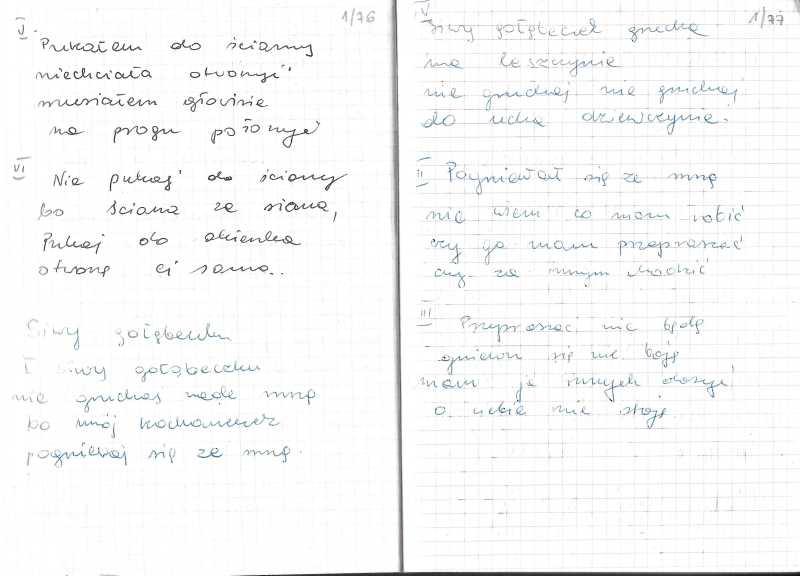 1/76
V.
Pukałem do ściany
niechciała otworzyć
musiałem głowisie
na progu położyć
VI
Nie pukaj do ściany
bo ściana ze siana,
Pukaj do okienka
otworzę ci sama..
Siwy gołąbecku
I Siwy gołąbeczku
nie gruchaj nade mną
bo mój kochaneczek
pogniewaj się ze mną.
1/77
IV
Siwy gołąbeczek grucha
na leszczynie
nie gruchaj nie gruchaj
do ucha dziewczynie.
II Pogniewał się ze mną
nie wiem co mam robić
czy go mam przepraszać
czy za innym chodzić
III
Przepraszać nie będę
gniewu się nie boję
mam ja innych dosyć
o ciebie nie stoję